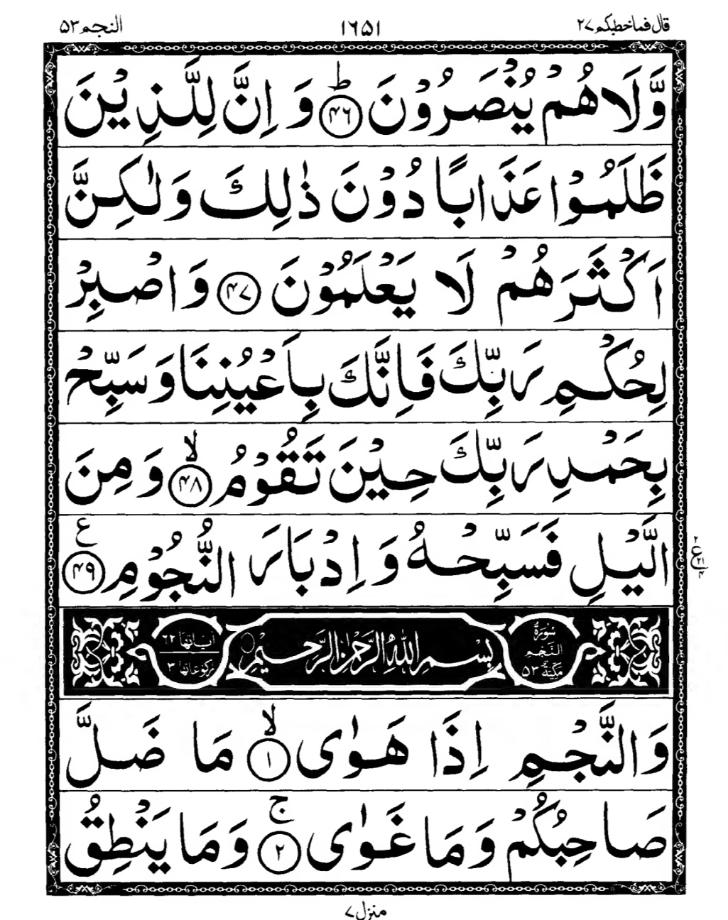 قال فماخطبكم ۲۷ ۱۶۵۱ النجم ۵۳
وَّلَا هُمْ يُنْصَرُوْنَ ؕ ﴿۴۶﴾ وَ اِنَّ لِلَّذِيْنَ
ظَلَمُوْا عَذَابًا دُوْنَ ذٰلِكَ وَلٰكِنَّ
اَكْثَرَهُمْ لَا يَعْلَمُوْنَ ﴿۴۷﴾ وَاصْبِرْ
لِحُكْمِ رَبِّكَ فَاِنَّكَ بِاَعْيُنِنَا وَسَبِّحْ
بِحَمْدِ رَبِّكَ حِيْنَ تَقُوْمُ ۙ ﴿۴۸﴾ وَمِنَ
الَّيْلِ فَسَبِّحْهُ وَ اِدْبَارَ النُّجُوْمِ ع ﴿۴۹﴾
ع ۲ ۲۱ ۴
سُوْرَةُ النَّجْمِ مَكِّيَّةٌ ۵۳ بِسْمِ اللهِ الرَّحْمٰنِ الرَّحِيْمِ اٰيَاتُهَا ۶۲ رُكُوْعَاتُهَا ۳
وَالنَّجْمِ اِذَا هَوٰى ۙ ﴿۱﴾ مَا ضَلَّ
صَاحِبُكُمْ وَمَا غَوٰى ۚ ﴿۲﴾ وَمَا يَنْطِقُ
منزل ۷